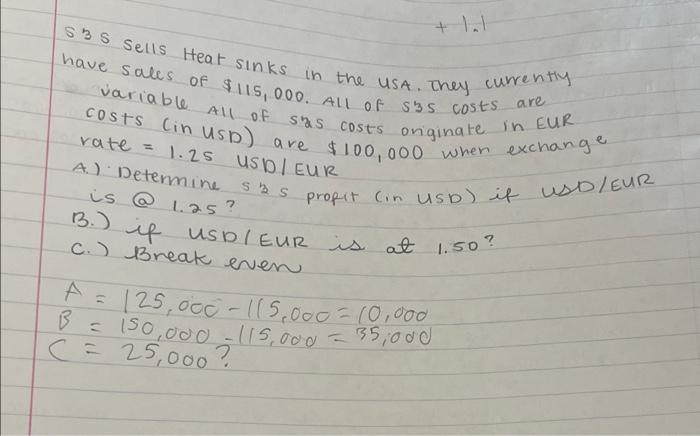 + 1.1
S&S sells Heat sinks in the USA. They currently
have sales of $115,000. All of S&S costs are
variable All of S&S costs originate in EUR
costs (in USD) are $100,000 when exchange
rate = 1.25 USD/EUR
A.) Determine S&S profit (in USD) if USD/EUR
is @ 1.25?
B.) if USD/EUR is at 1.50?
C.) Break even
A = 125,000 - 115,000 = 10,000
B = 150,000 - 115,000 = 35,000
C = 25,000?